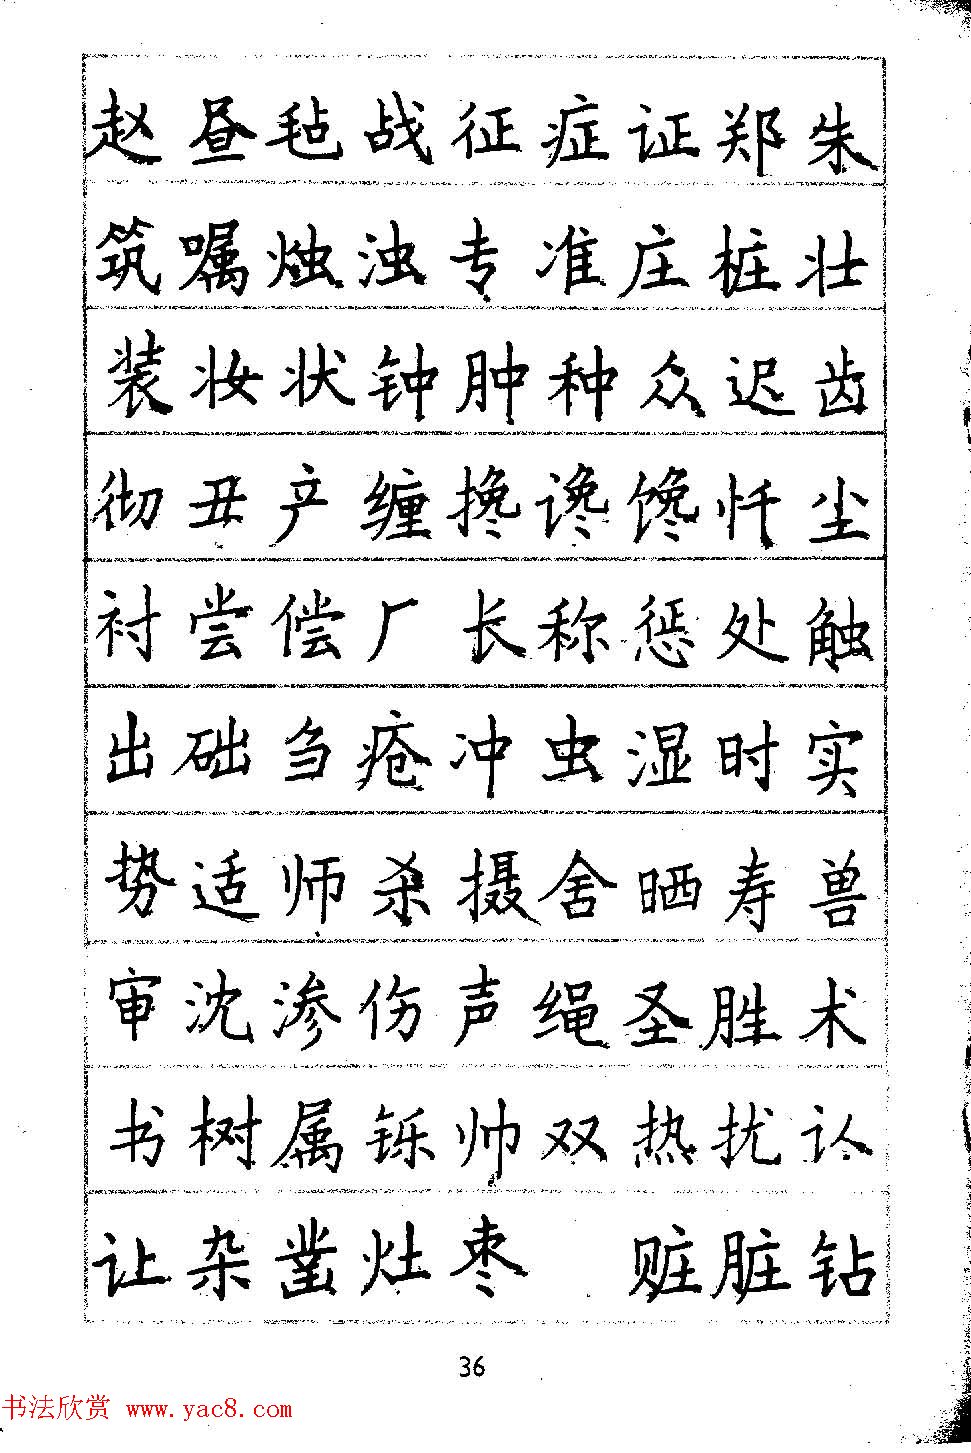 赵昼毡战征症证郑朱
筑嘱烛浊专准庄桩壮
装妆状钟肿种众迟齿
彻丑产缠搀谗馋忏尘
衬尝偿厂长称惩处触
出础刍疮冲虫湿时实
势适师杀摄舍晒寿兽
审沈渗伤声绳圣胜术
书树属铄帅双热扰认
让杂凿灶枣 赃脏钻
36
书法欣赏 www.yac8.com